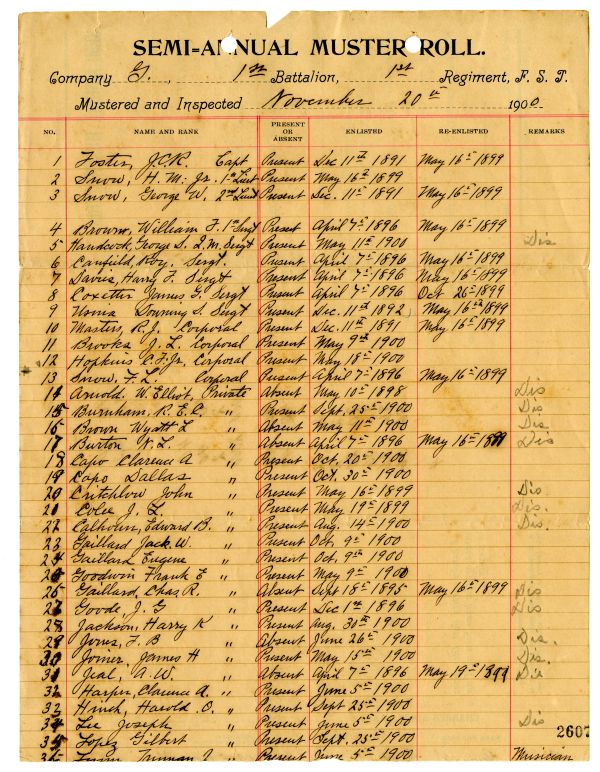 SEMI-ANNUAL MUSTER ROLL.
Company G., 1st Battalion, 1st Regiment, F. S. T.
Mustered and Inspected November 20th 1900
NO. NAME AND RANK PRESENT OR ABSENT ENLISTED RE-ENLISTED REMARKS
1 Foster, J.C.R. Capt Present Dec 11th 1891 May 16th 1899
2 Snow, H. M. Jr. 1st Lieut Present May 16th 1899
3 Snow, George W. 2nd Lieut Present Dec. 11th 1891 May 16th 1899
4 Browne, William F. 1st Sergt Present April 7th 1896 May 16th 1899
5 Handcock, George S. Q.M. Sergt Present May 11th 1900 Dis
6 Canfield, Roy, Sergt. Present April 7th 1896 May 16th 1899
7 Davis, Harry F. Sergt Present April 7th 1896 May 16th 1899
8 Coxetter James F. Sergt Present April 7th 1896 Oct 26th 1899
9 Usina Downing S. Sergt Present Dec. 11th 1892 May 16th 1899
10 Masters, R.J. Corporal Present Dec. 11th 1891 May 16th 1899
11 Brooks J. L. Corporal Present May 9th 1900
12 Hopkins C.F. Jr. Corporal Present May 18th 1900
13 Snow, F. L. Corporal Present April 7th 1896 May 16th 1899
14 Arnold, W. Elliot, Private Absent May 10th 1898 Dis
15 Burnham, R. E. C. " Present Sept. 25th 1900 Dis
16 Brown Wyatt L " Absent May 11th 1900 Dis
17 Burton N. L. " Absent April 7th 1896 May 16th 1899 Dis
18 Capo Clarence A " Present Oct. 20th 1900
19 Capo Dallas " Present Oct. 30th 1900
20 Critchlow John " Present May 16th 1899 Dis.
21 Colee J. L. " Present May 19th 1899 Dis.
22 Calhoun, Edward B. " Present Aug. 14th 1900 Dis.
23 Gaillard Jack W. " Present Oct. 9th 1900
24 Gaillard Eugene " Present Oct. 9th 1900
25 Goodwin Frank E " Present May 9th 1900
26 Gaillard, Chas. R. " Absent Sept 18th 1895 May 16th 1899 Dis
27 Goode, J. G " Present Dec 1st 1896 Dis
28 Jackson, Harry K " Present Aug. 30th 1900
29 Jones, F. B " Absent June 26th 1900 Dis.
30 Joiner, James H " Present May 15th 1900 Dis.
31 A. W. " Absent April 7th 1896 May 19th 1899 Dis
32 Harper, Clarence A. " Present June 5th 1900
32 Hinck, Harold O. " Present Sept 25th 1900
34 Lee Joseph " Present June 5th 1900 Dis
35 Lopez Gilbert " Present Sept. 25th 1900
2607
Truman Present June 5th 1900 Musician